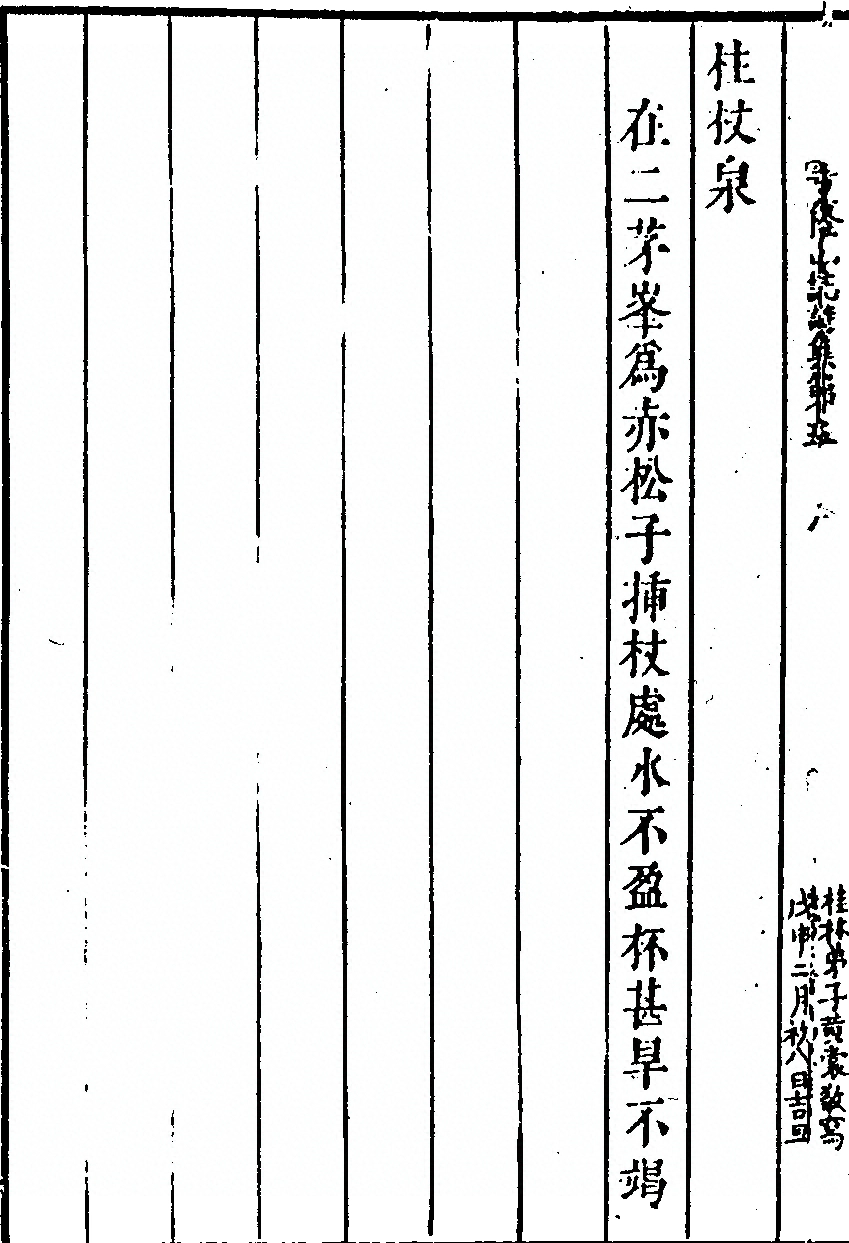 桂林弟子黄裳敬寫
戊申二月初八日吉旦
柱杖泉
在二茅峯爲赤松子揷杖處水不盈杯甚旱不竭